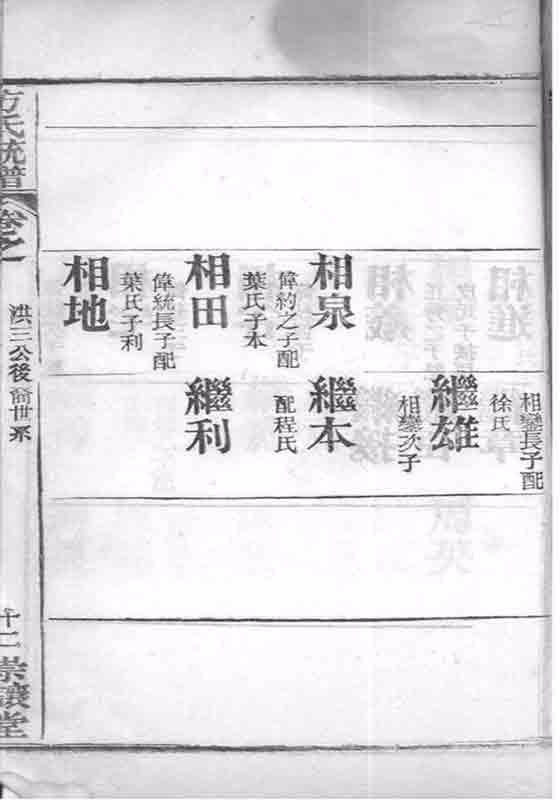 相鑾長子配
徐氏
繼雄
相鑾次子
相泉
偉約之子配
葉氏子本
繼本
配程氏
相田
偉統長子配
葉氏子利
繼利
相地
方氏統譜
卷之一
洪三公後裔世系
十二
崇讓堂